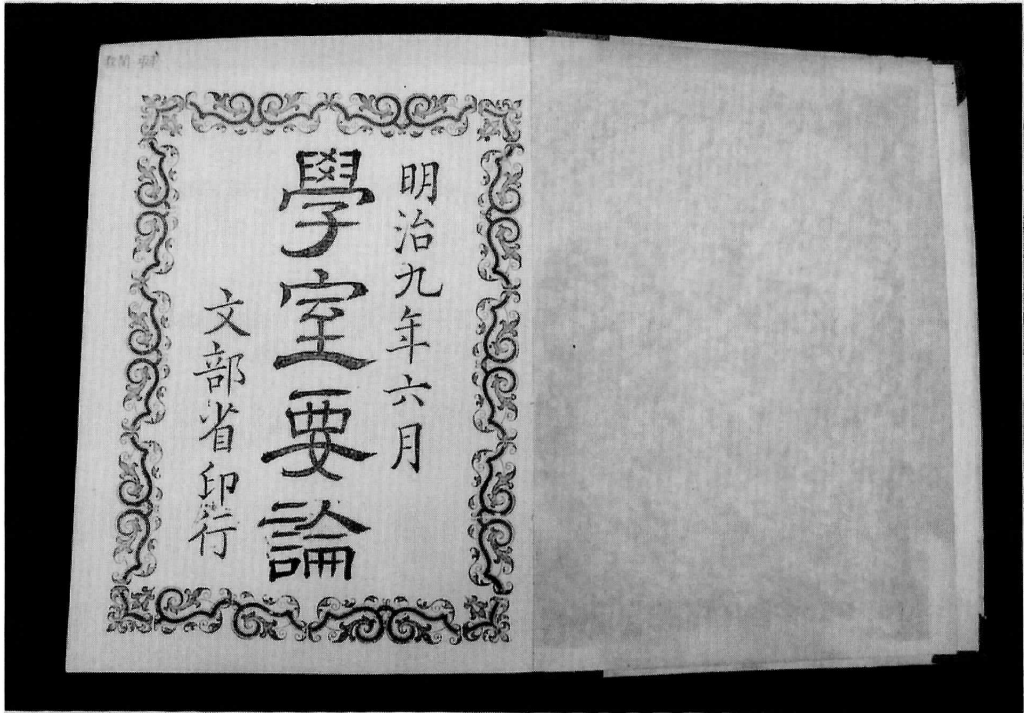 明治九年六月
學室要論
文部省印行